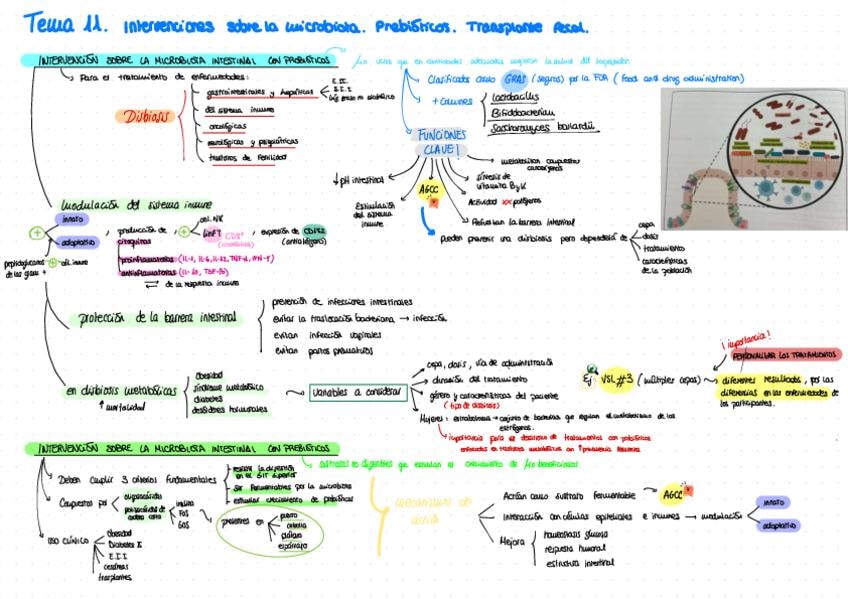 Tema 11. Intervenciones sobre la microbiota. Prebióticos. Transplante Fecal.
INTERVENCIÓN SOBRE LA MICROBIOTA INTESTINAL CON PROBIÓTICOS
Para el tratamiento de enfermedades:
Disbiosis
gastrointestinales y hepáticas
E.I.I.
S.I.I.
del sistema inmune
oncológicas
neurológicas y psiquiátricas
trastornos de fertilidad
vivos que en cantidades adecuadas mejoran la salud del hospedador
Clasificados como GRAS (seguros) por la FDA (food and drug administration)
+ comunes
Lactobacillus
Bifidobacterium
Saccharomyces boulardii
FUNCIONES CLAVE!
↓pH intestinal
Estimulación del sistema inmune
AGCC
metabolizan compuestos cancerígenos
síntesis de vitamina B y K
Actividad patógenos
Refuerzan la barrera intestinal
pueden prevenir una disbiosis pero dependería de
cepa
dosis
tratamiento
características de la población
modulación del sistema inmune
innato
adaptativo
peptidoglicanos de las gram +
cél. inmune
producción de citoquinas
proinflamatorias
antiinflamatorias
de la respuesta inmune
cél. NK
expresión de
protección de la barrera intestinal
prevención de infecciones intestinales
evitar la traslocación bacteriana → infección
evitan infección vaginales
evitan partos prematuros
en disbiosis metabólicas
↑ mortalidad
obesidad
síndrome metabólico
diabetes
desórdenes hormonales
variables a considerar
cepa, dosis, vía de administración
duración del tratamiento
género y características del paciente
(tipo de disbiosis)
Mujeres: estroboloma → conjunto de bacterias que regulan el metabolismo de los estrógenos.
importancia para el desarrollo de tratamientos con probióticos
Ej VSL#3 (múltiples cepas)
diferentes resultados, por las diferencias en las enfermedades de los participantes.
¡importancia!
PERSONALIZAR LOS TRATAMIENTOS
INTERVENCIÓN SOBRE LA MICROBIOTA INTESTINAL CON PREBIÓTICOS
sustratos no digeribles que estimulan el crecimiento de beneficiosos
Deben cumplir 3 criterios fundamentales
resistir la digestión en el GIT superior
ser fermentables por la microbiota
estimular crecimiento de probióticos
Compuestos por
oligosacáridos
polisacáridos de cadena corta
inulina
FOS
GOS
presentes en
puerro
cebolla
plátano
espárrago
USO CLÍNICO
obesidad
Diabetes II
E.I.I.
trasplantes
mecanismos de acción
Actúan como sustrato fermentable → AGCC
Interacción con células epiteliales e inmunes → modulación
innato
adaptativo
Mejora
homeostasis glucosa
respuesta humoral
estructura intestinal